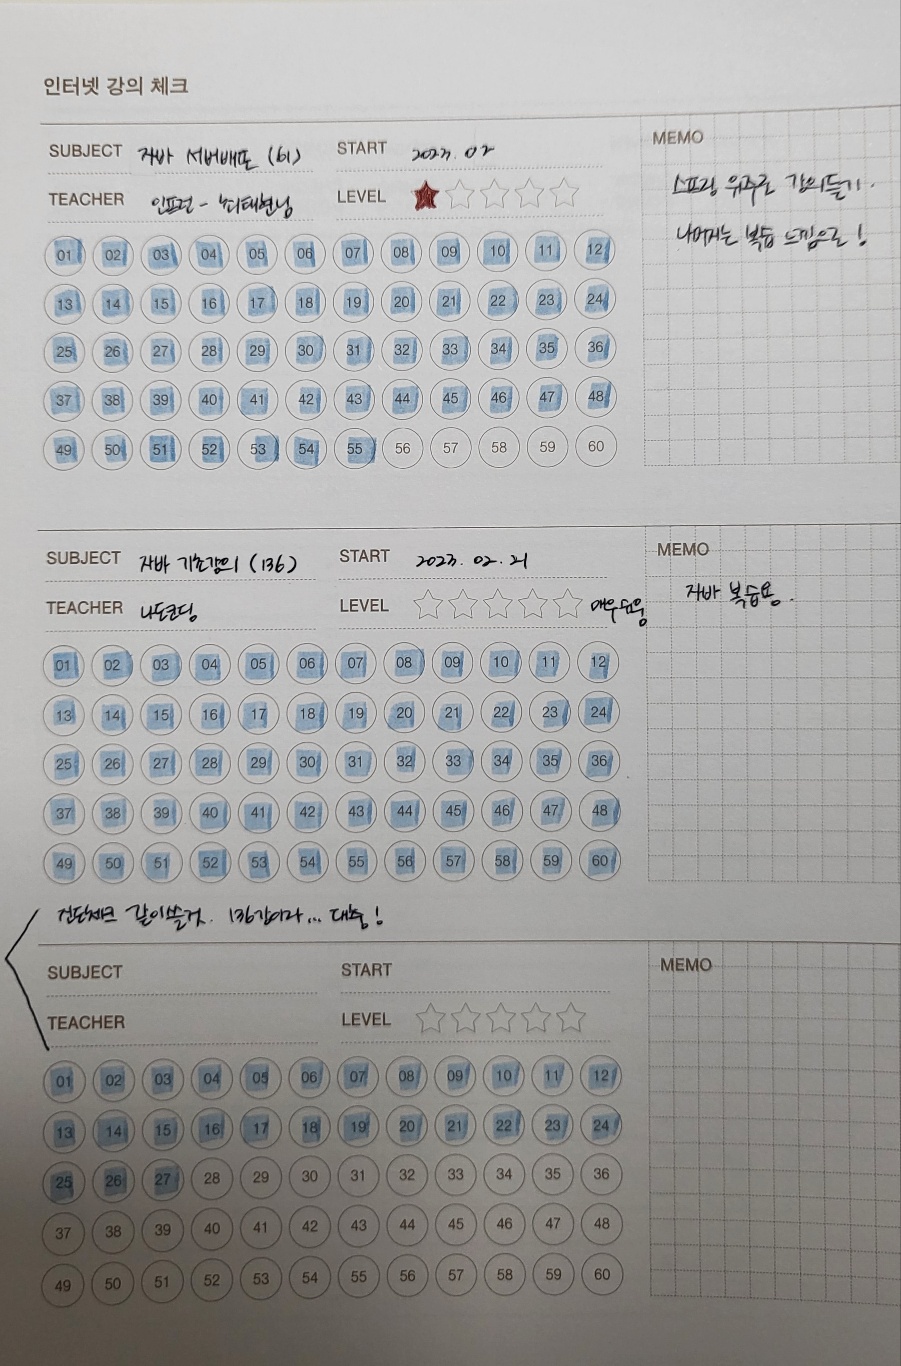 인터넷 강의 체크
SUBJECT 자바 서버배포 (61) START 2023. 02 MEMO
스프링 위주로 강의듣기.
TEACHER 인프런 - LEVEL
나머지는 복습 느낌으로!
01 02 03 04 05 06 07 08 09 10 11 12
13 14 15 16 17 18 19 20 21 22 23 24
25 26 27 28 29 30 31 32 33 34 35 36
37 38 39 40 41 42 43 44 45 46 47 48
49 50 51 52 53 54 55 56 57 58 59 60
SUBJECT 자바 기초강의 (136) START 2023. 02. 21 MEMO
TEACHER 나도코딩 LEVEL 매우쉬움 자바 복습용.
01 02 03 04 05 06 07 08 09 10 11 12
13 14 15 16 17 18 19 20 21 22 23 24
25 26 27 28 29 30 31 32 33 34 35 36
37 38 39 40 41 42 43 44 45 46 47 48
49 50 51 52 53 54 55 56 57 58 59 60
같이쓸것. 136강이라... 대충!
SUBJECT START MEMO
TEACHER LEVEL
01 02 03 04 05 06 07 08 09 10 11 12
13 14 15 16 17 18 19 20 21 22 23 24
25 26 27 28 29 30 31 32 33 34 35 36
37 38 39 40 41 42 43 44 45 46 47 48
49 50 51 52 53 54 55 56 57 58 59 60